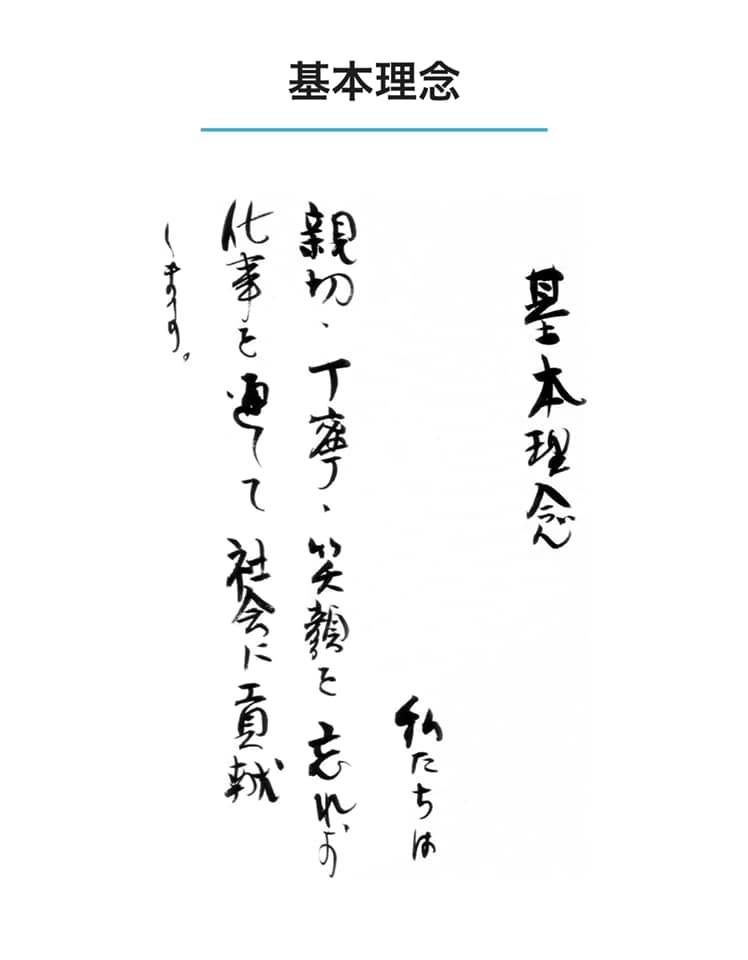 基本理念
基本理念
私たちは
親切、丁寧、笑顔を忘れず
仕事を通して社会に貢献
します。